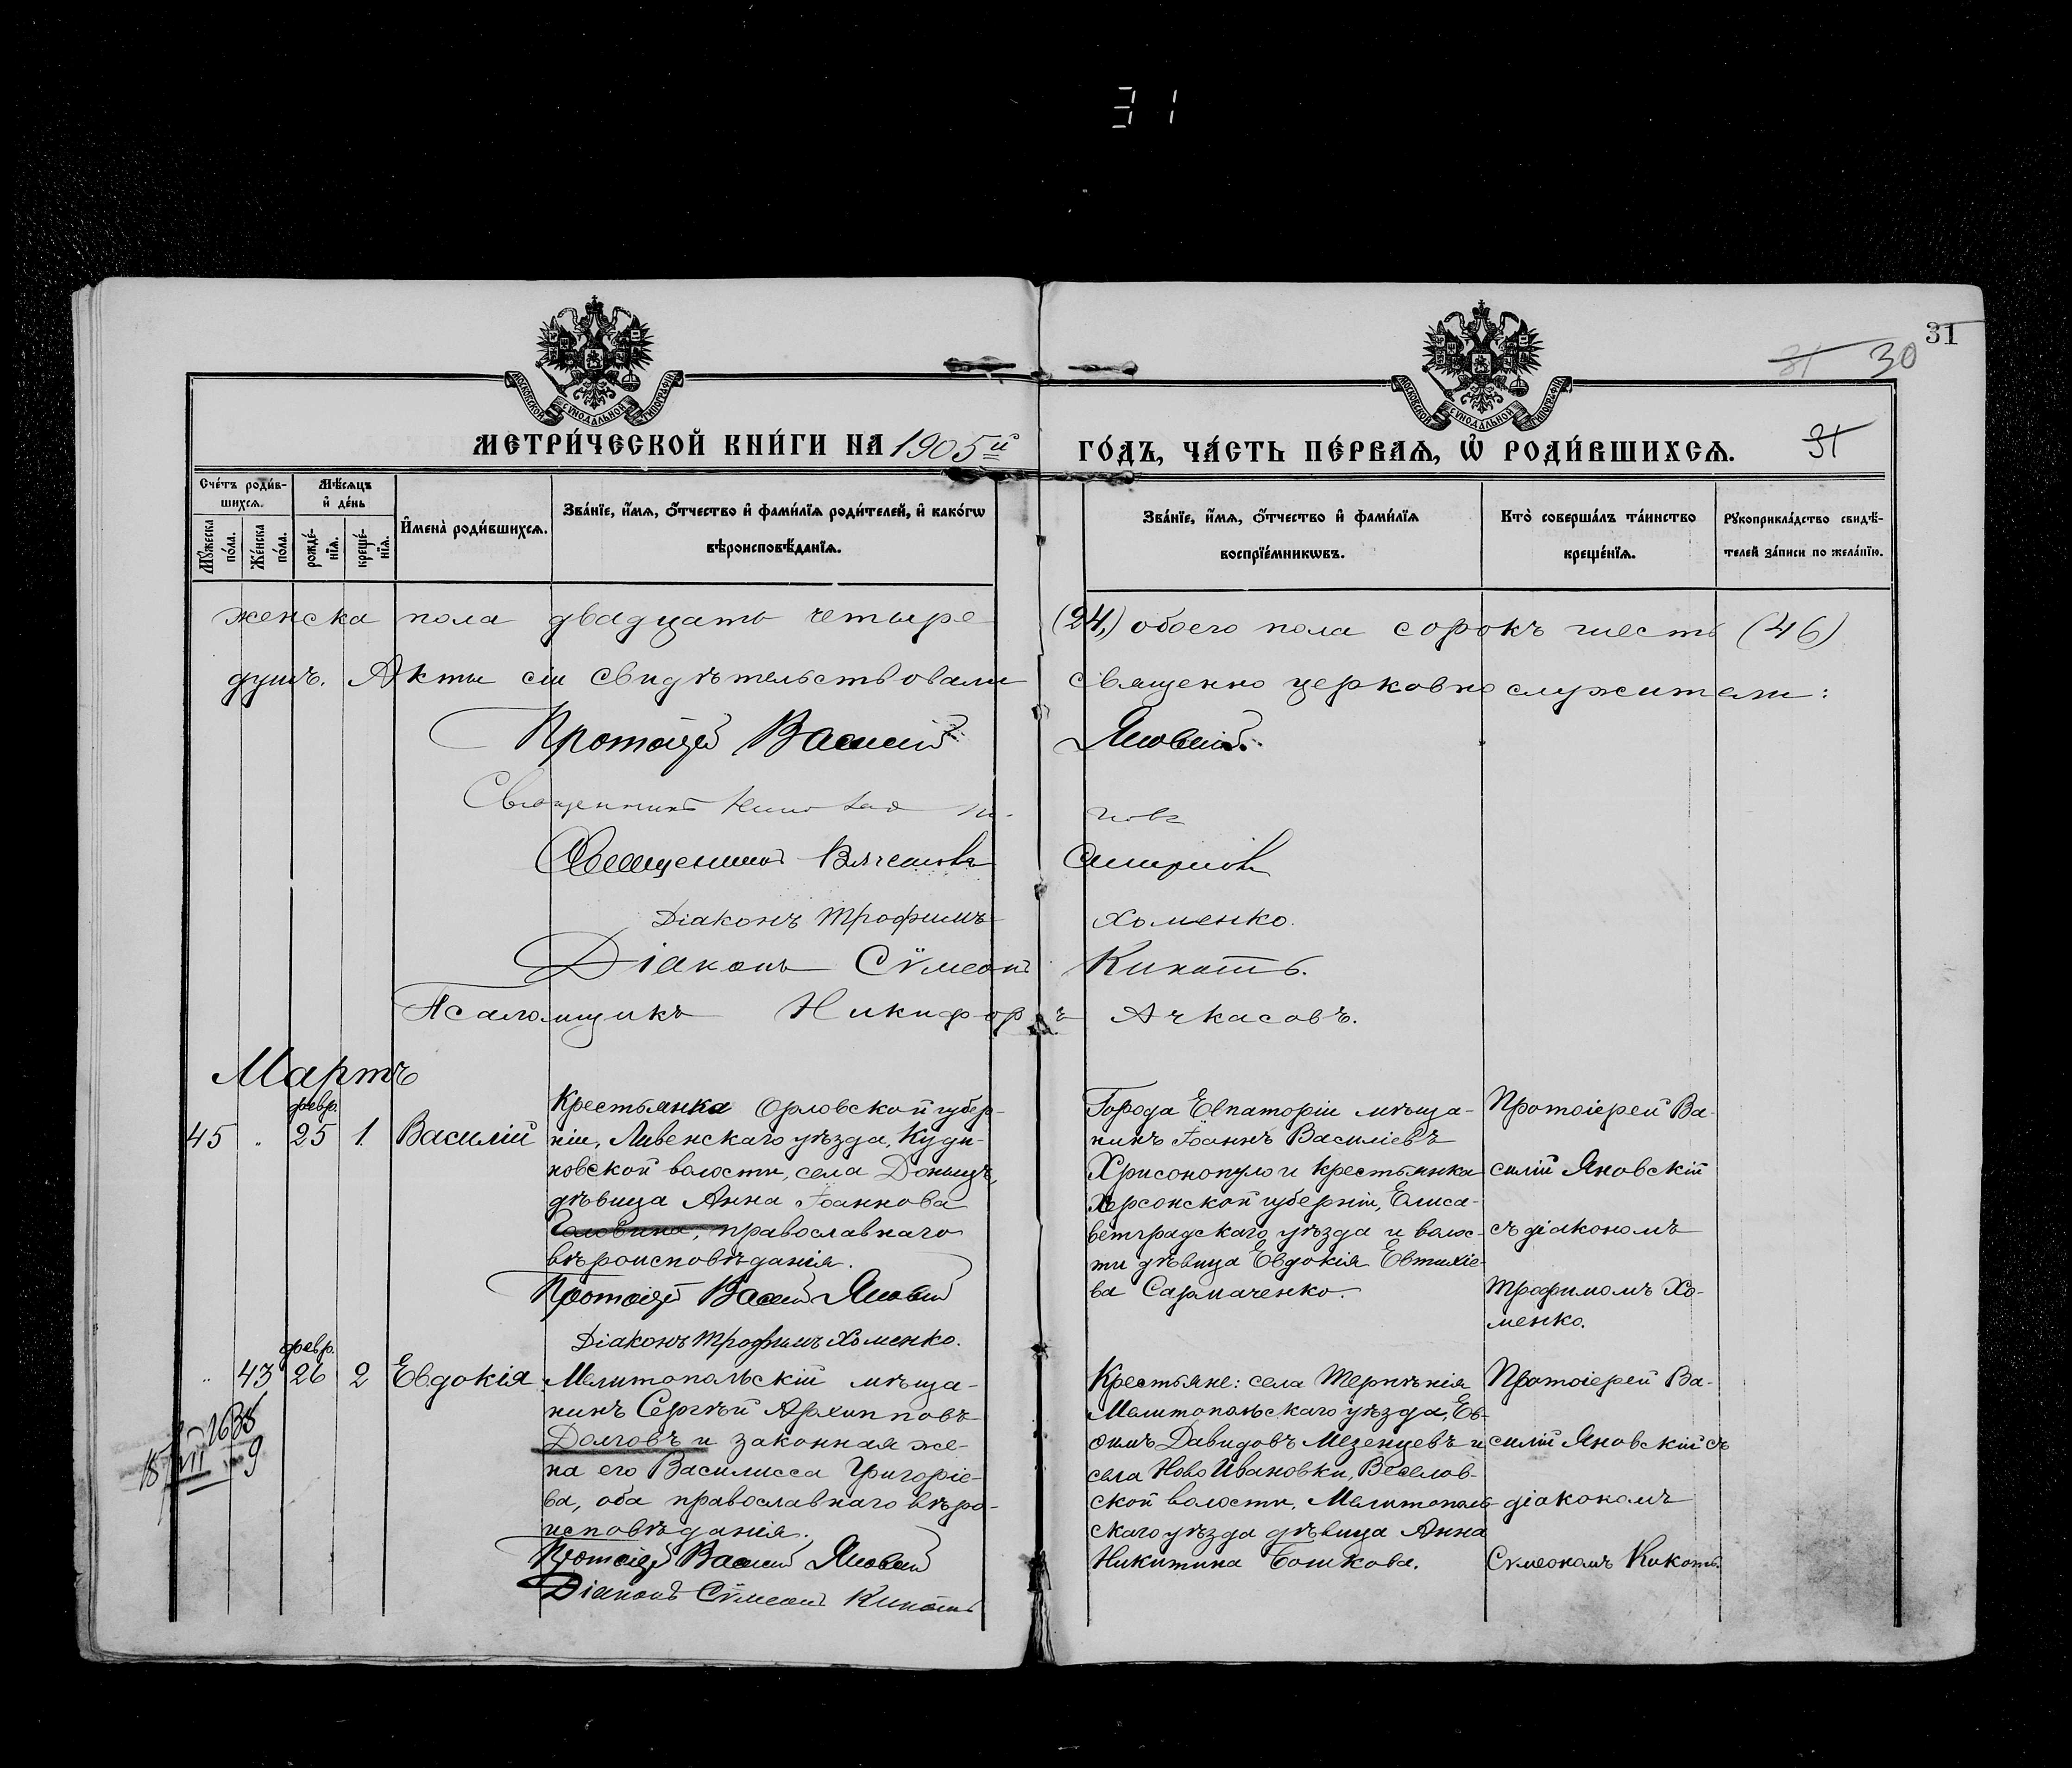 31
31
31 30
МОСКОВСКОЙ СѴНОДАЛЬНОЙ ТИПОГРАФІИ
МОСКОВСКОЙ СѴНОДАЛЬНОЙ ТИПОГРАФІИ
МЕТРИ́ЧЕСКОЙ КНИ́ГИ НА 1905й
ГО́ДЪ, ЧА́СТЬ ПЕ́РВАѦ, Ѡ҆ РОДИ́ВШИХСѦ.
31
Сче́тъ роди́в-
шихсѧ.
Мѣ́сѧцъ
и҆ де́нь
Мꙋ́жеска
по́ла.
Же́нска
по́ла.
рожде́-
нїѧ.
креще́-
нїѧ.
И҆мена̀ роди́вшихсѧ.
Зва́нїе, и҆́мѧ, ѻ҆́тчество и҆ фами́лїѧ роди́телей, и҆ како́гѡ
вѣроисповѣ́данїѧ.
Зва́нїе, и҆́мѧ, ѻ҆́тчество и҆ фами́лїѧ
воспрїе́мникѡвъ.
Кто̀ соверша́лъ та́инство
креще́нїѧ.
Рꙋкоприкла́дство свидѣ́-
телей за́писи по жела́нїю.
женска пола двадцать четыре (24,) обоего пола сорокъ шесть (46)
душъ. Акты сіи свидѣтельствовали священно церковно служители:
Протоіерей Василій Яновскій.
Священникъ
Священникъ Вячеславъ Смирновъ
Діаконъ Трофимъ Хоменко.
Діаконъ Сѵмеонъ Кикоть.
Псаломщикъ Никифоръ Ачкасовъ.
Мартъ
февр.
45 " 25 1. Василій
Крестьянка Орловской губер-
ніи, Ливенскаго уѣзда, Куди-
новской волости, села Донецъ,
дѣвица Анна Іоаннова
Головина, православнаго
вѣроисповѣданія.
Протоіерей Василій Яновскій
Діаконъ Трофимъ Хоменко.
Города Евпаторіи мѣща-
нинъ Іоаннъ Василіевъ
Хрисонопуло и крестьянка
Херсонской губерніи, Елиса-
ветградскаго уѣзда и волос-
ти дѣвица Евдокія Евтихіе-
ва Сармаченко.
Протоіерей Ва-
силій Яновскій
съ діакономъ
Трофимомъ Хо-
менко.
февр.
" 43 26 2 Евдокія
Мелитопольскій мѣща-
нинъ Сергѣй Архипповъ
Долговъ и законная же-
на его Василисса Григоріе-
ва, оба православнаго вѣро-
исповѣданія.
Протоіерей Василій Яновскій
Діаконъ Сѵмеонъ Кикоть
Крестьяне: села Терпѣнія
Мелитопольскаго уѣзда, Ев-
ѳимъ Давидовъ Мезенцевъ и
села Ново Ивановки, Веселов-
ской волости, Мелитополь-
скаго уѣзда дѣвица Анна
Никитина Бошкова.
Протоіерей Ва-
силій Яновскій съ
діакономъ
Сѵмеономъ Кикоть.